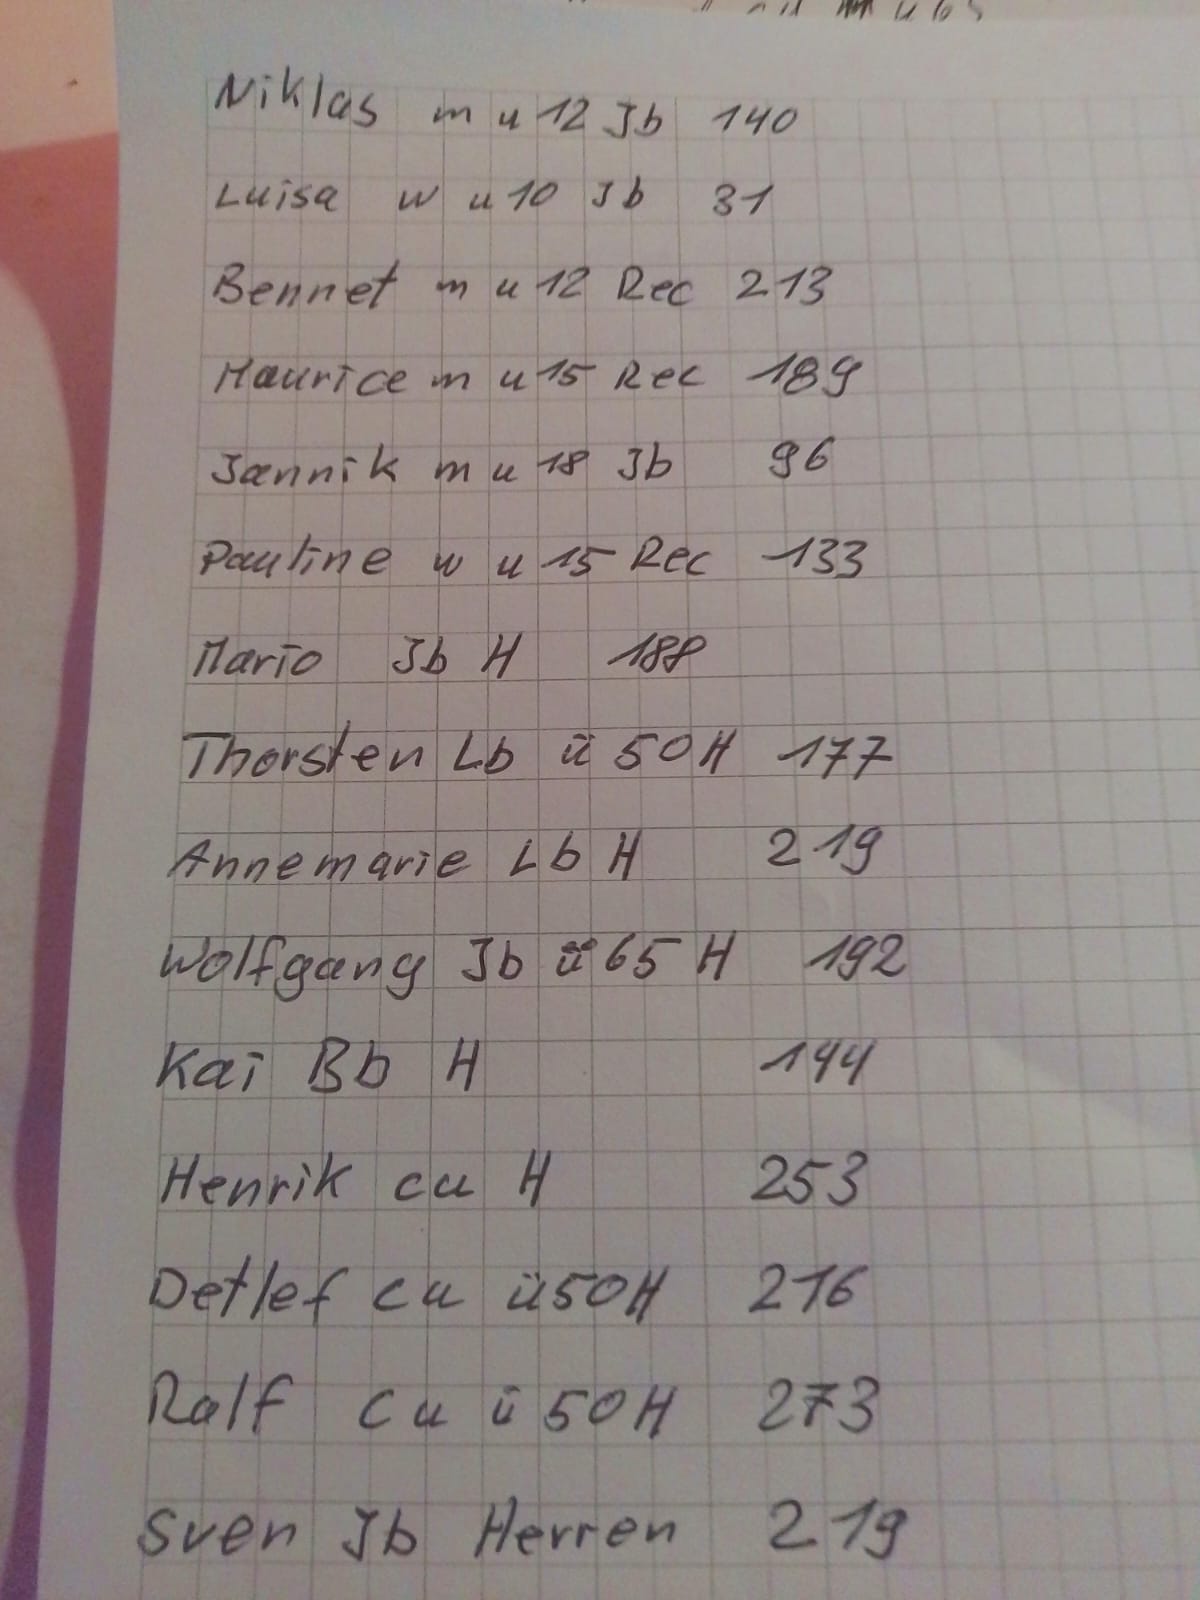 Niklas m u 12 Jb 140
Luisa w u 10 Jb 31
Bennet m u 12 Rec 213
Maurice m u 15 Rec 189
Jannik m u 18 Jb 96
Pauline w u 15 Rec 133
Mario Jb H 188
Thorsten Lb ü 50 H 177
Annemarie Lb H 219
Wolfgang Jb ü 65 H 192
Kai Bb H 144
Henrik cu H 253
Detlef cu ü 50 H 216
Ralf cu ü 50 H 273
Sven Jb Herren 219